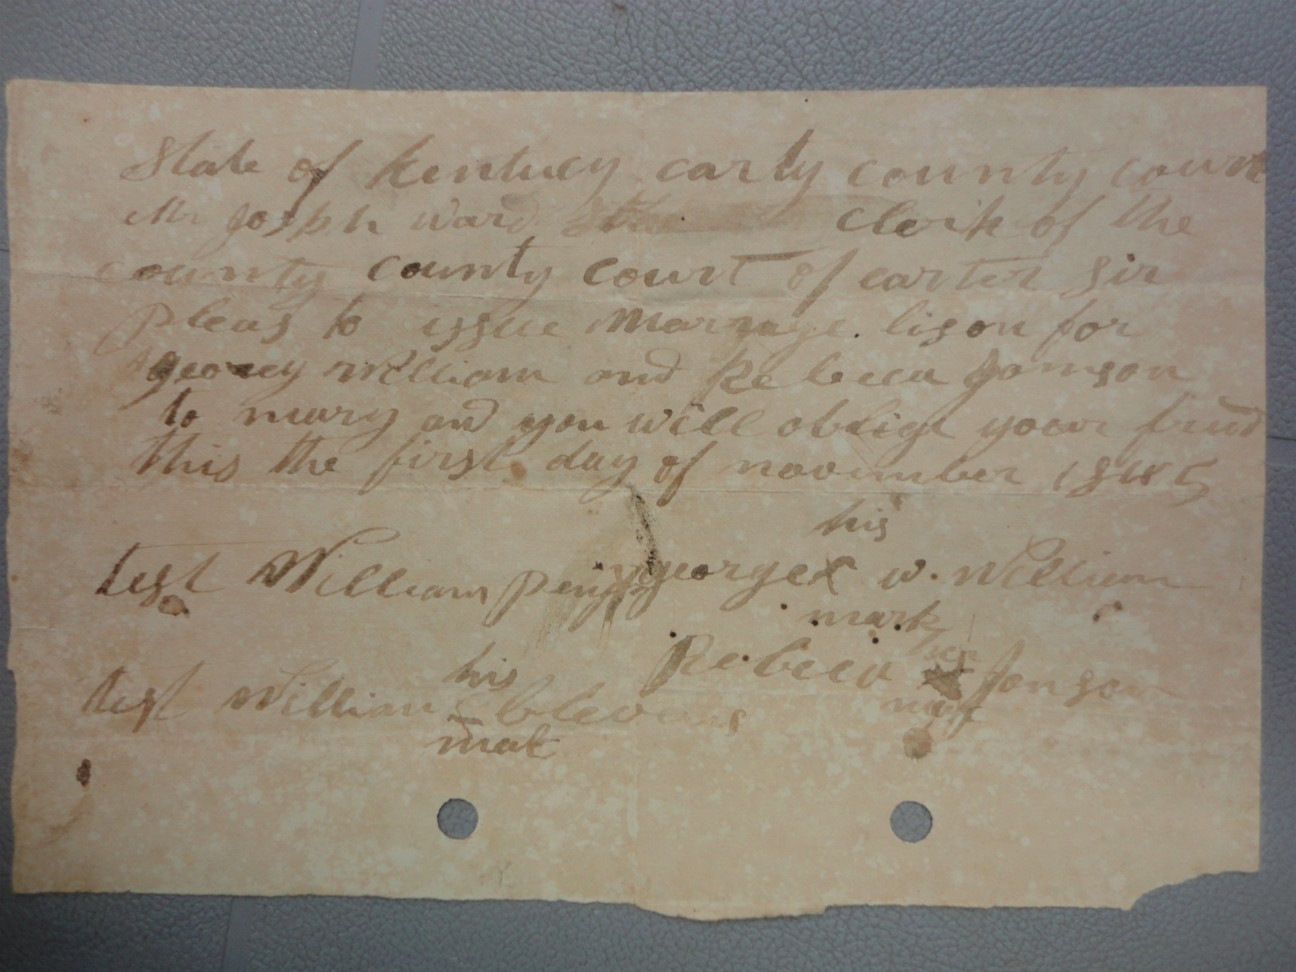 State of Kentucy carty county court
Mr Josph Ward clerk of the
county county court of carter Sir
Pleas to issue Marrage lison for
georey William and Rebecca Jomson
to mary and you will oblige your frind
this the first day of november 1845
his
test William george X w. William
mark
Rebecca her Jonson
his
test William blevins mark
mak